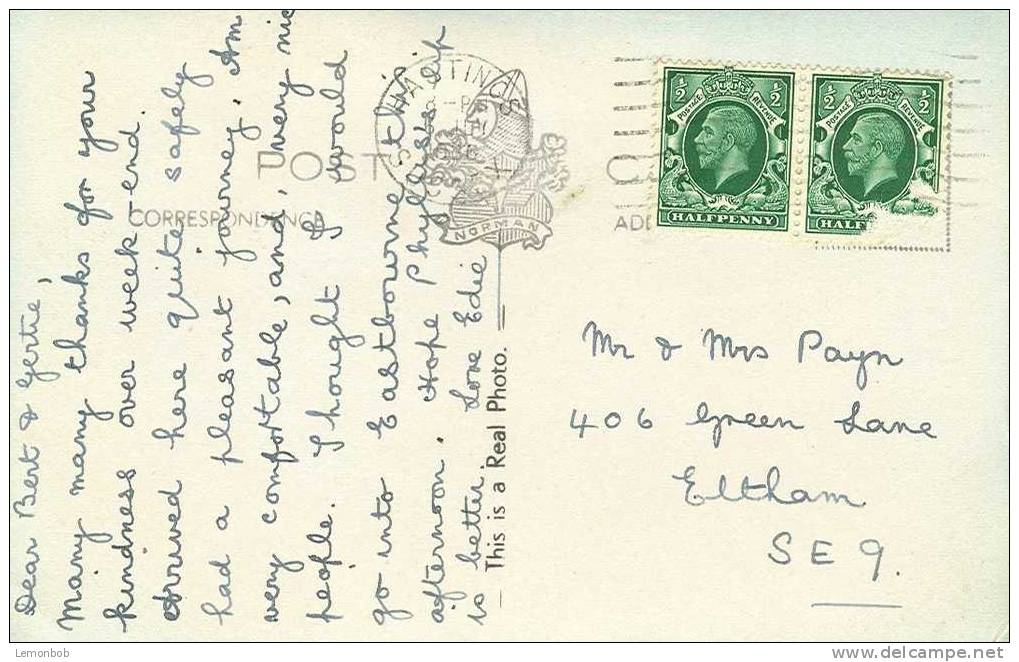 Dear Bert & Gertie,
Many many thanks for your
kindness over week-end.
Arrived here quite safely
had a pleasant journey. Am
very comfortable, and, very nice
people. Thought I would
go into Eastbourne this
afternoon. Hope Phyllss's lip
is better. Love Edie
— This is a Real Photo.
POST
CORRESPONDANCE
NORMAN
HASTINGS
ADD
½ ½
POSTAGE REVENUE
HALFPENNY
½ ½
POSTAGE REVENUE
HALF
Mr & Mrs Payn
406 Green Lane
Eltham
S E 9.
Lemonbob
www.delcampe.net